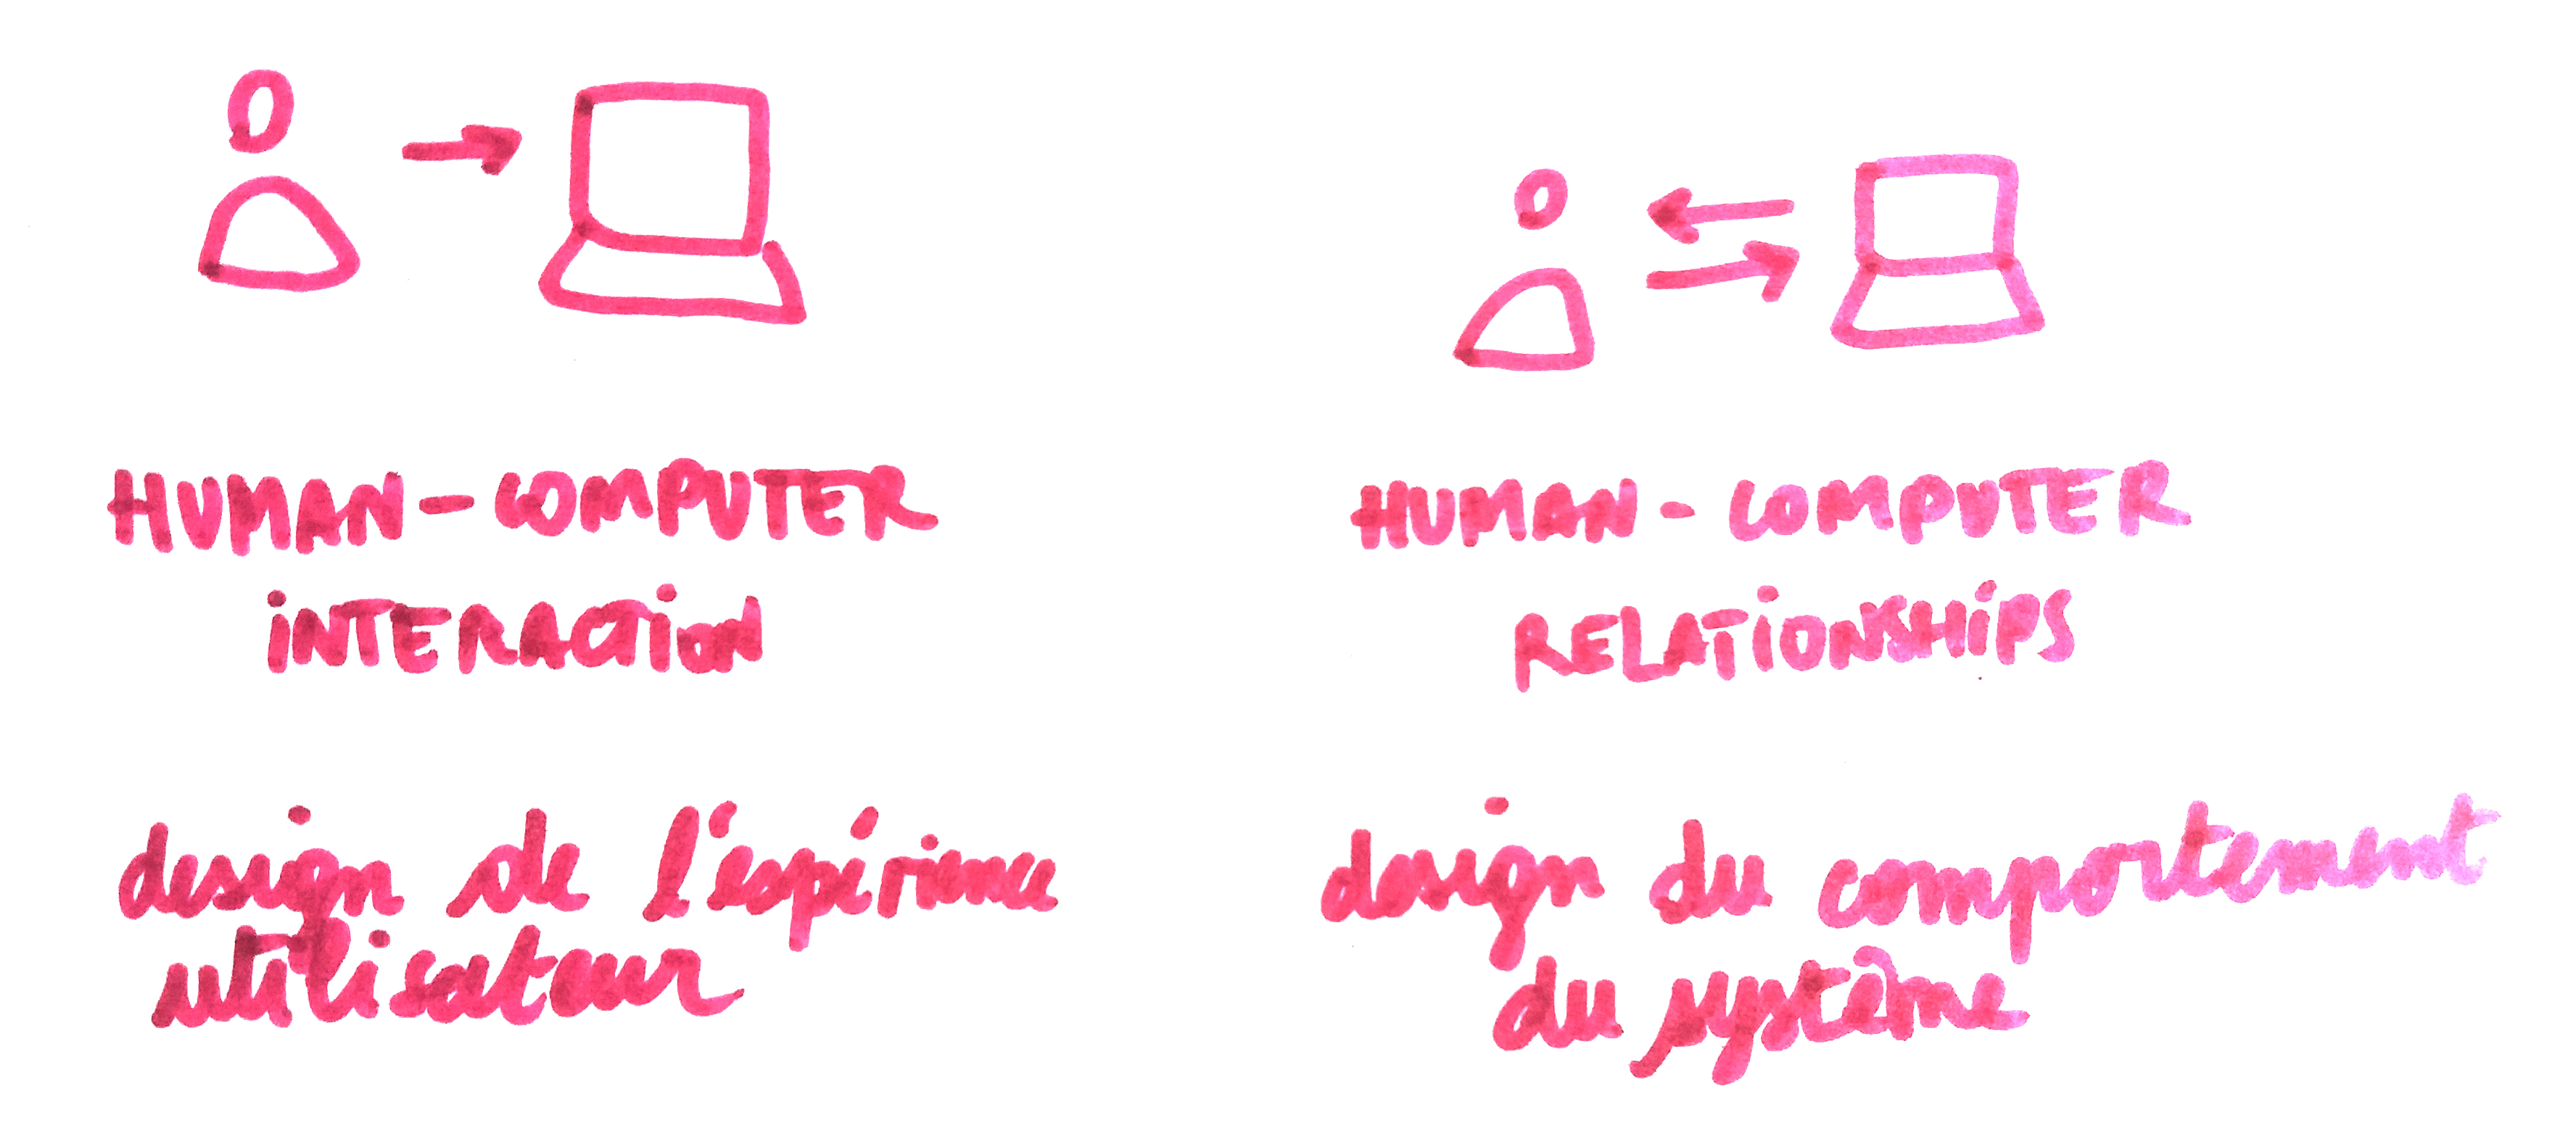 HUMAN-COMPUTER
iNTERACTiON
design de l'expérience
utilisateur
HUMAN-COMPUTER
RELATiONSHiPS
design du comportement
du système